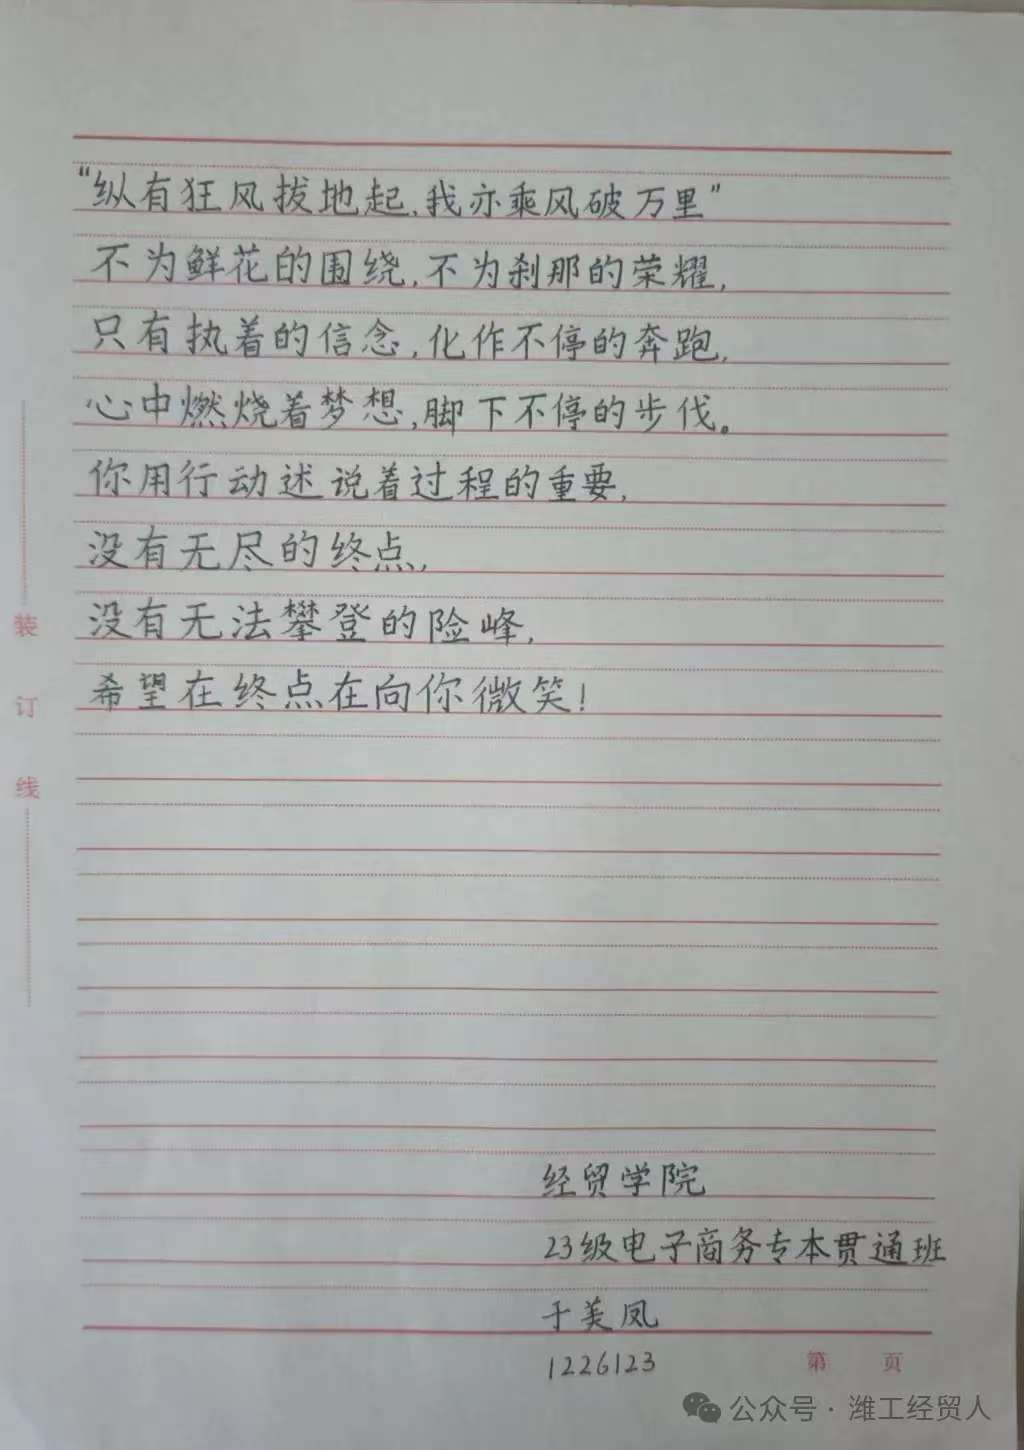 “纵有狂风拔地起,我亦乘风破万里”
不为鲜花的围绕,不为刹那的荣耀,
只有执着的信念,化作不停的奔跑,
心中燃烧着梦想,脚下不停的步伐。
你用行动述说着过程的重要,
没有无尽的终点,
没有无法攀登的险峰,
希望在终点在向你微笑!
装
订
线
经贸学院
23级电子商务专本贯通班
于美凤
1226123
第 页
公众号·潍工经贸人